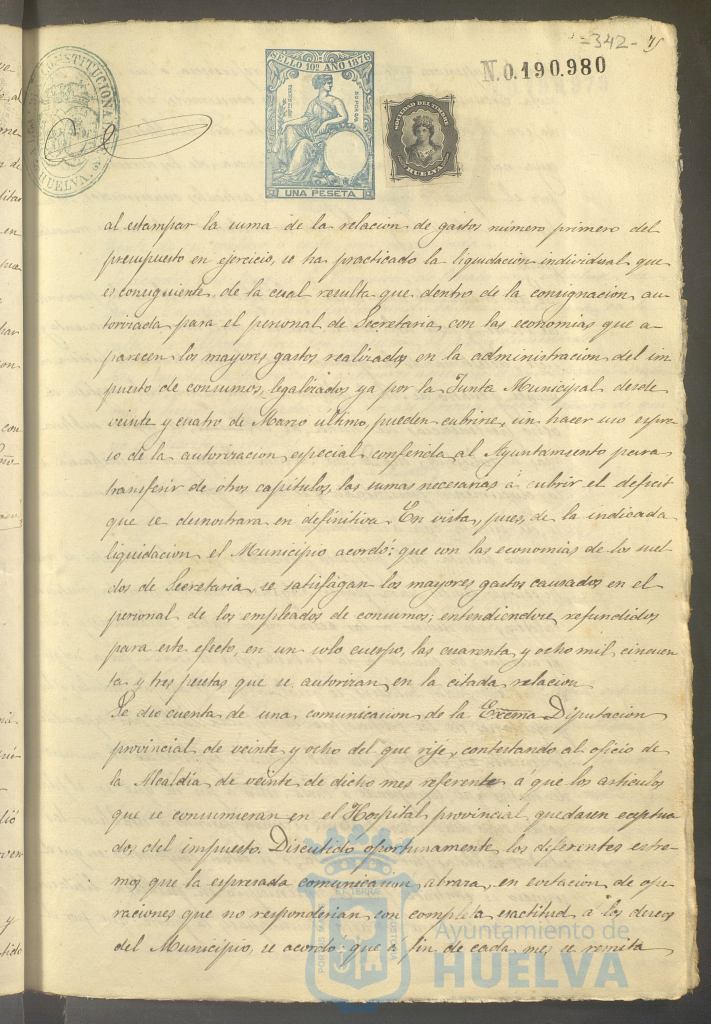 -342- 75
N.0.190.980
CONSTITUCIONAL
HUELVA
SELLO 10º AÑO 1876
UNA PESETA
SOCIEDAD DEL TIMBRE
HUELVA
al estampar la suma de la relacion de gastos número primero del
presupuesto en ejercicio, se ha practicado la liquidacion individual que
es consiguiente, de la cual resulta que dentro de la consignacion au-
torizada para el personal de Secretaria, con las economias que a-
parecen los mayores gastos realizados en la administracion del im
puesto de consumos, legalizados ya por la Junta Municipal desde
veinte y cuatro de Marzo último, pueden cubrirse, sin hacer uso espre-
so de la autorizacion especial conferida al Ayuntamiento para
transferir de otros capítulos, las sumas necesarias á cubrir el deficit
que se demostrara en definitiva. En vista, pues, de la indicada
liquidacion el Municipio acordó: que con las economias de los suel
dos de Secretaria, se satisfagan los mayores gastos causados en el
personal de los empleados de consumos; entendiendose refundidos
para este efecto, en un solo cuerpo, las cuarenta y ocho mil cincuen
ta y tres pesetas que se autorizan en la citada relacion
Se dio cuenta de una comunicacion de la Excma Diputacion
provincial de veinte y ocho del que rije, contestando al oficio de
la Alcaldia de veinte de dicho mes referente á que los articulos
que se consumieran en el Hospital provincial quedasen eceptua
dos del impuesto. Discutido oportunamente los diferentes estre-
mos que la espresada comunicacion abraza, en evitacion de ope-
raciones que no responderian con completa esactitud á los deseos
del Municipio, se acordó: que á fin de cada mes se remita
Ayuntamiento de
HUELVA